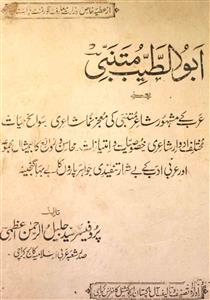 ابو الطیّب متنبّی
یعنی
عرب کے مشہور شاعر متنبی کی معجز نما شاعری سوانح حیات
مختلف ادوار شاعری خصوصیات امتیازات محاسن
اور عربی ادب کے بے شمار تنقیدی جواہر پاروں کا بے بہا گنجینہ
تالیف
پروفیسر سید جلیل الرحمٰن اعظمی
صدر شعبہ عربی اسلامیہ کالج کراچی